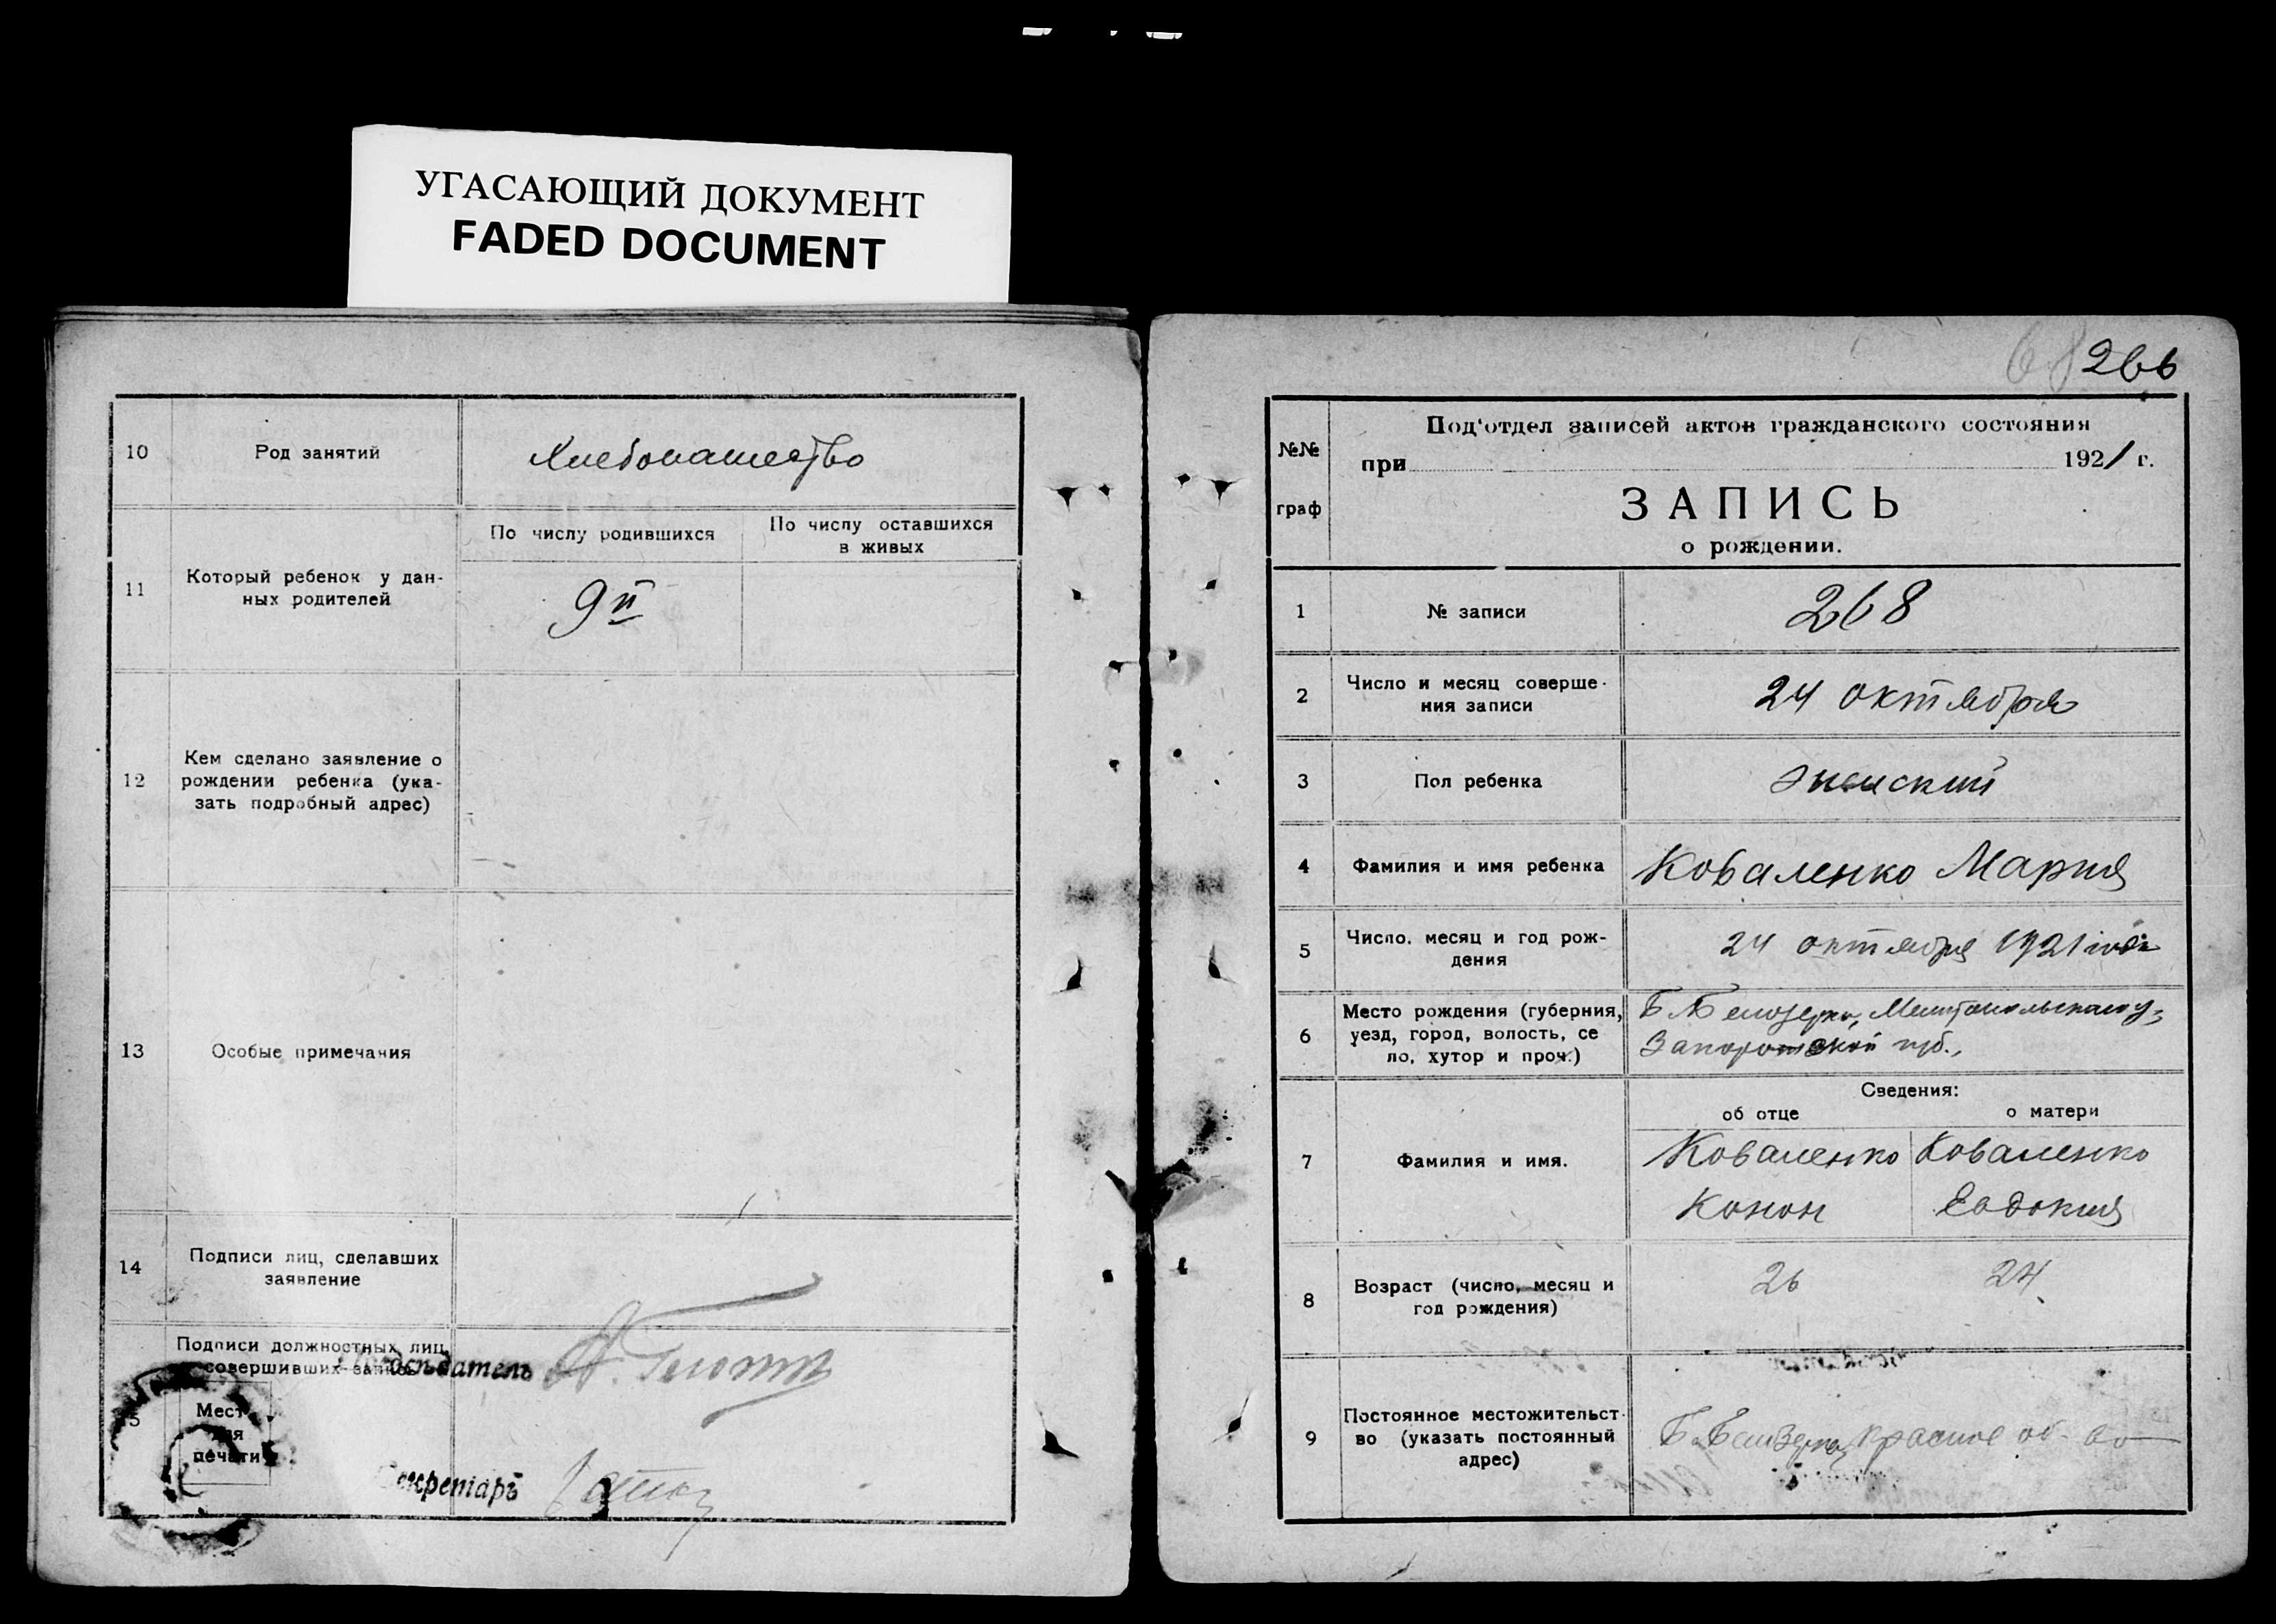 УГАСАЮЩИЙ ДОКУМЕНТ
FADED DOCUMENT
10
Род занятий
Хлебопашество
11
Который ребенок у дан-
ных родителей
По числу родившихся
По числу оставшихся
в живых
9й
12
Кем сделано заявление о
рождении ребенка (ука-
зать подробный адрес)
13
Особые примечания
14
Подписи лиц, сделавших
заявление
15
Подписи должностных лиц,
совершивших запись
Председатель
Место
для
печати
Секретарь
266
№№
граф
Под'отдел записей актов гражданского состояния
при 1921 г.
ЗАПИСЬ
о рождении.
1
№ записи
268
2
Число и месяц соверше-
ния записи
24 октября
3
Пол ребенка
женский
4
Фамилия и имя ребенка
Коваленко Мария
5
Число, месяц и год рож-
дения
24 октября 1921 года
6
Место рождения (губерния,
уезд, город, волость, се
ло, хутор и проч.)
Б Белозерка, Мелитопольского у,
Запорожской губ.,
Сведения:
об отце
о матери
7
Фамилия и имя.
Коваленко
Конон
Коваленко
Евдокия
8
Возраст (число, месяц и
год рождения)
26
24
9
Постоянное местожительст-
во (указать постоянный
адрес)
Б. Белозерка, Красное об-во